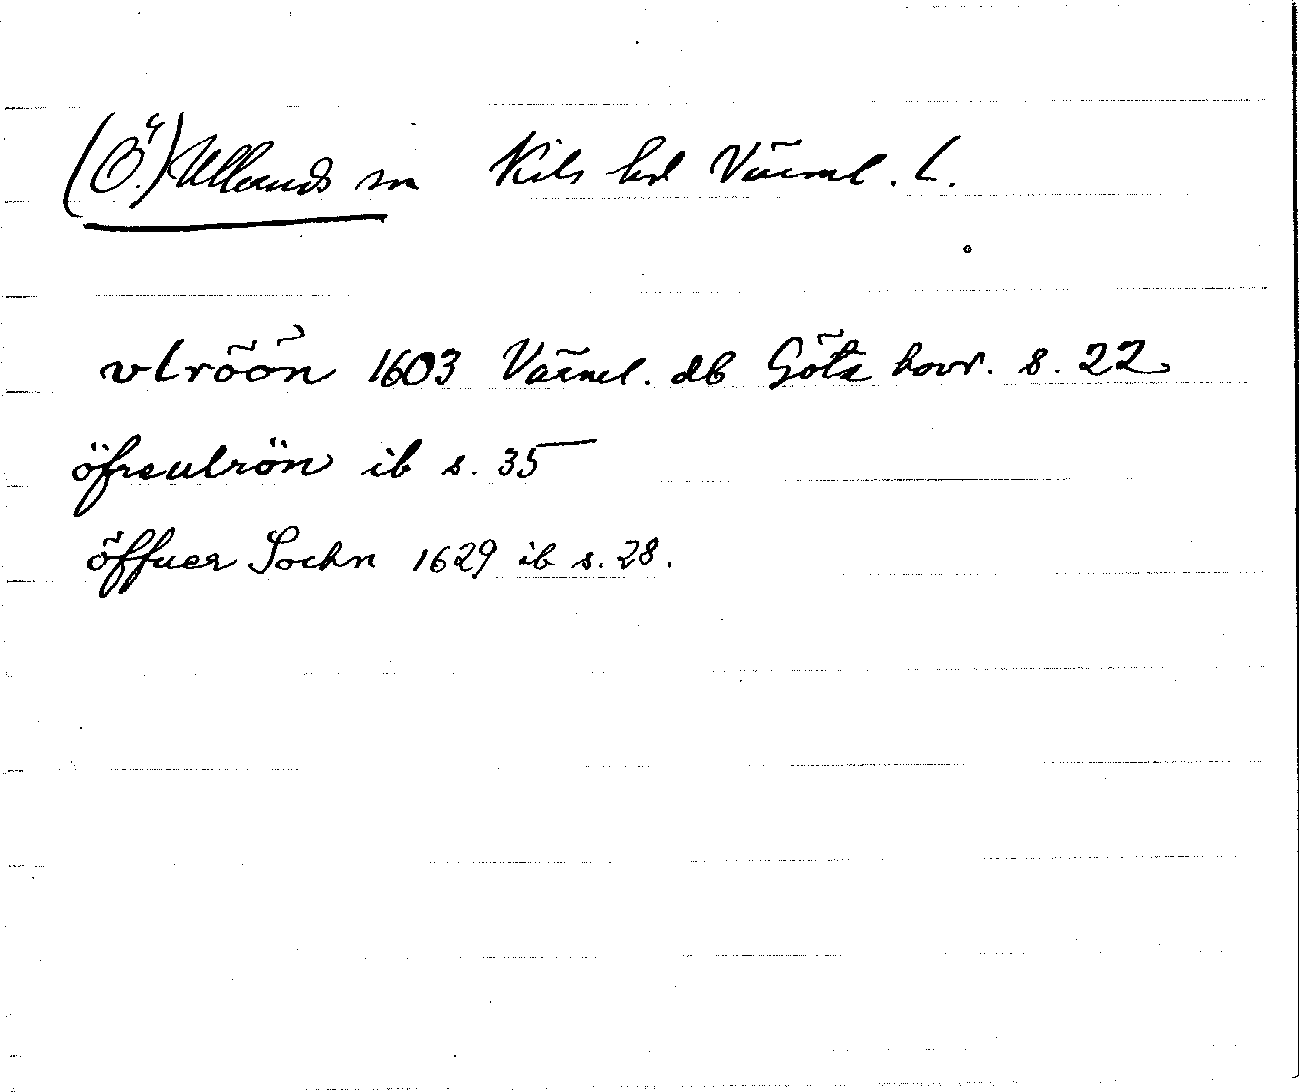 (Ö.) Ulleruds sn Kils hd Värml. L.
vlröön 1603 Värml. db Göta hovr. s. 22
öfreulrön ib s. 35
öffuer Sochn 1629 ib s. 28.